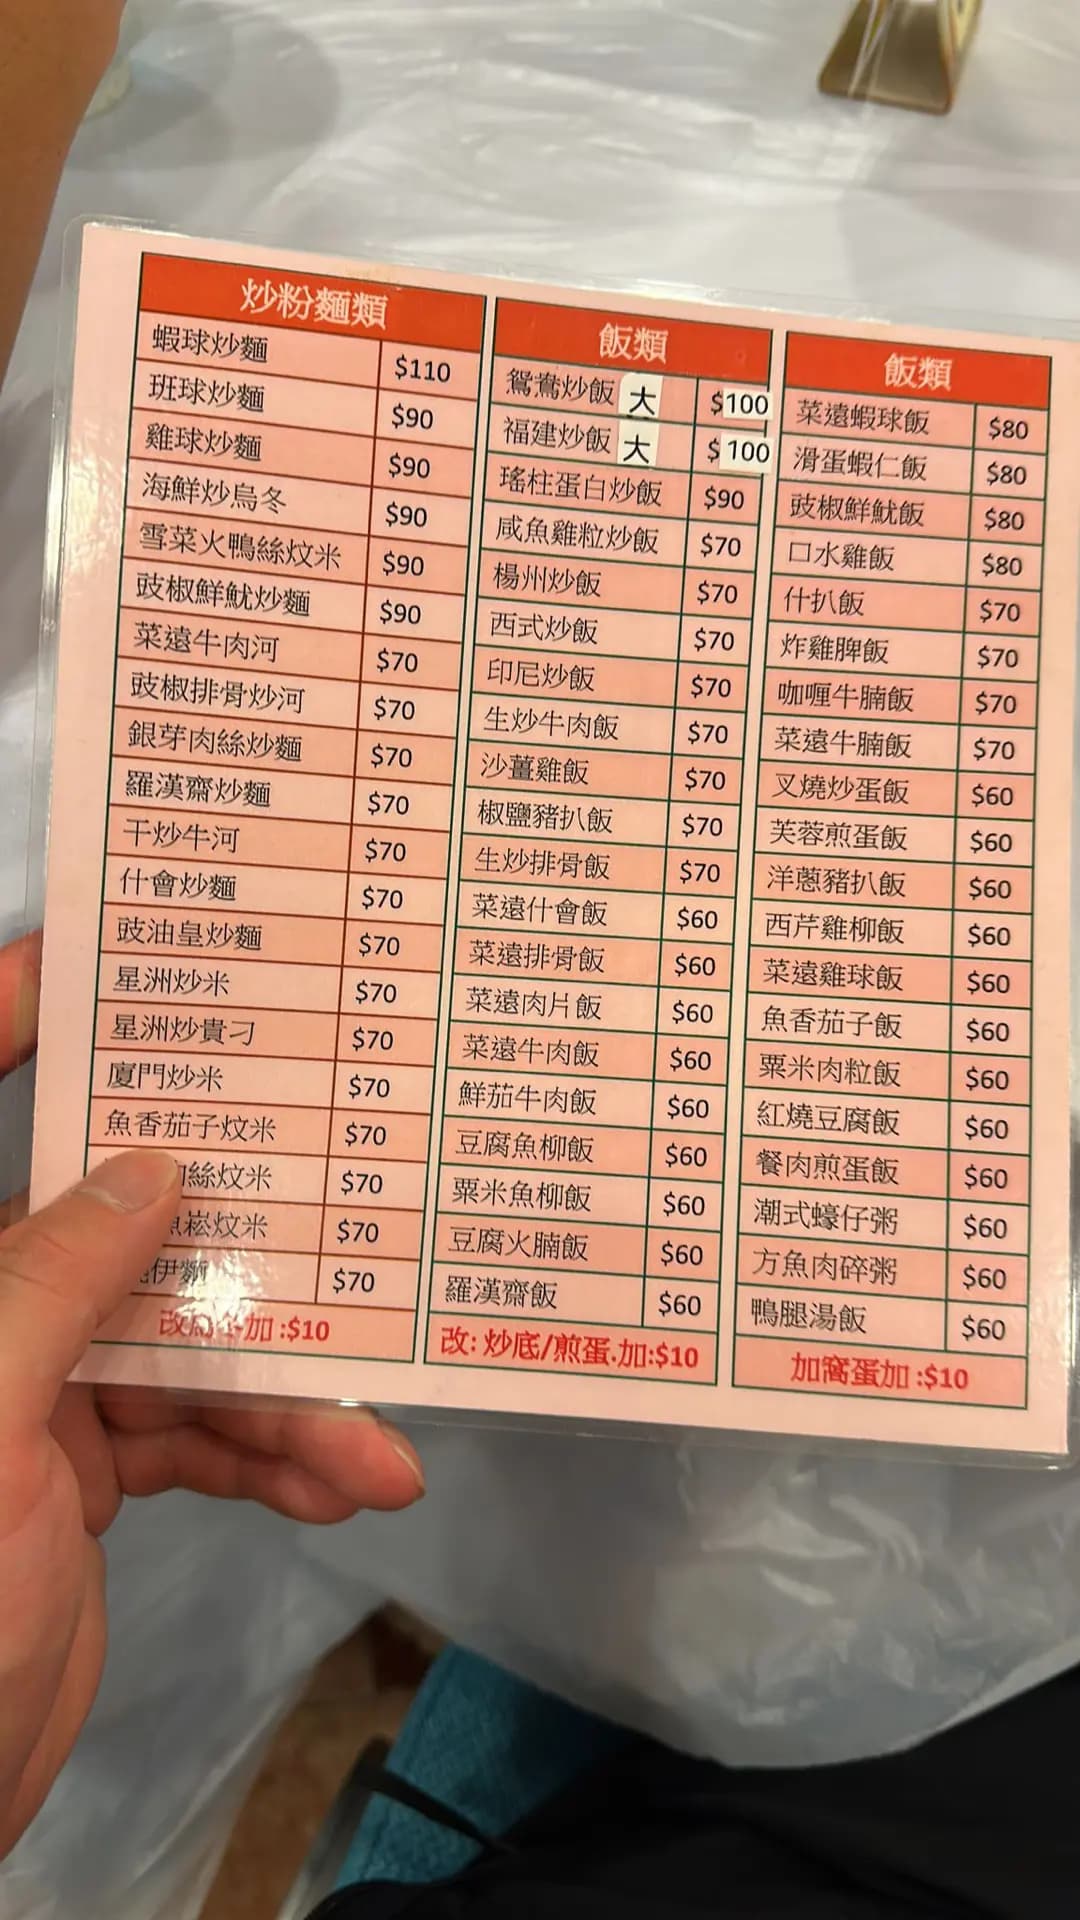 炒粉麵類
蝦球炒麵 $110
班球炒麵 $90
雞球炒麵 $90
海鮮炒烏冬 $90
雪菜火鴨絲炆米 $90
豉椒鮮魷炒麵 $90
菜遠牛肉河 $70
豉椒排骨炒河 $70
銀芽肉絲炒麵 $70
羅漢齋炒麵 $70
干炒牛河 $70
什會炒麵 $70
豉油皇炒麵 $70
星洲炒米 $70
星洲炒貴刁 $70
廈門炒米 $70
魚香茄子炆米 $70
絲炆米 $70
崧炆米 $70
伊麵 $70
改 加:$10
飯類
鴛鴦炒飯 大 $100
福建炒飯 大 $100
瑤柱蛋白炒飯 $90
咸魚雞粒炒飯 $70
楊州炒飯 $70
西式炒飯 $70
印尼炒飯 $70
生炒牛肉飯 $70
沙薑雞飯 $70
椒鹽豬扒飯 $70
生炒排骨飯 $70
菜遠什會飯 $60
菜遠排骨飯 $60
菜遠肉片飯 $60
菜遠牛肉飯 $60
鮮茄牛肉飯 $60
豆腐魚柳飯 $60
粟米魚柳飯 $60
豆腐火腩飯 $60
羅漢齋飯 $60
改: 炒底/煎蛋.加:$10
飯類
菜遠蝦球飯 $80
滑蛋蝦仁飯 $80
豉椒鮮魷飯 $80
口水雞飯 $80
什扒飯 $70
炸雞脾飯 $70
咖喱牛腩飯 $70
菜遠牛腩飯 $70
叉燒炒蛋飯 $60
芙蓉煎蛋飯 $60
洋蔥豬扒飯 $60
西芹雞柳飯 $60
菜遠雞球飯 $60
魚香茄子飯 $60
粟米肉粒飯 $60
紅燒豆腐飯 $60
餐肉煎蛋飯 $60
潮式蠔仔粥 $60
方魚肉碎粥 $60
鴨腿湯飯 $60
加窩蛋加:$10